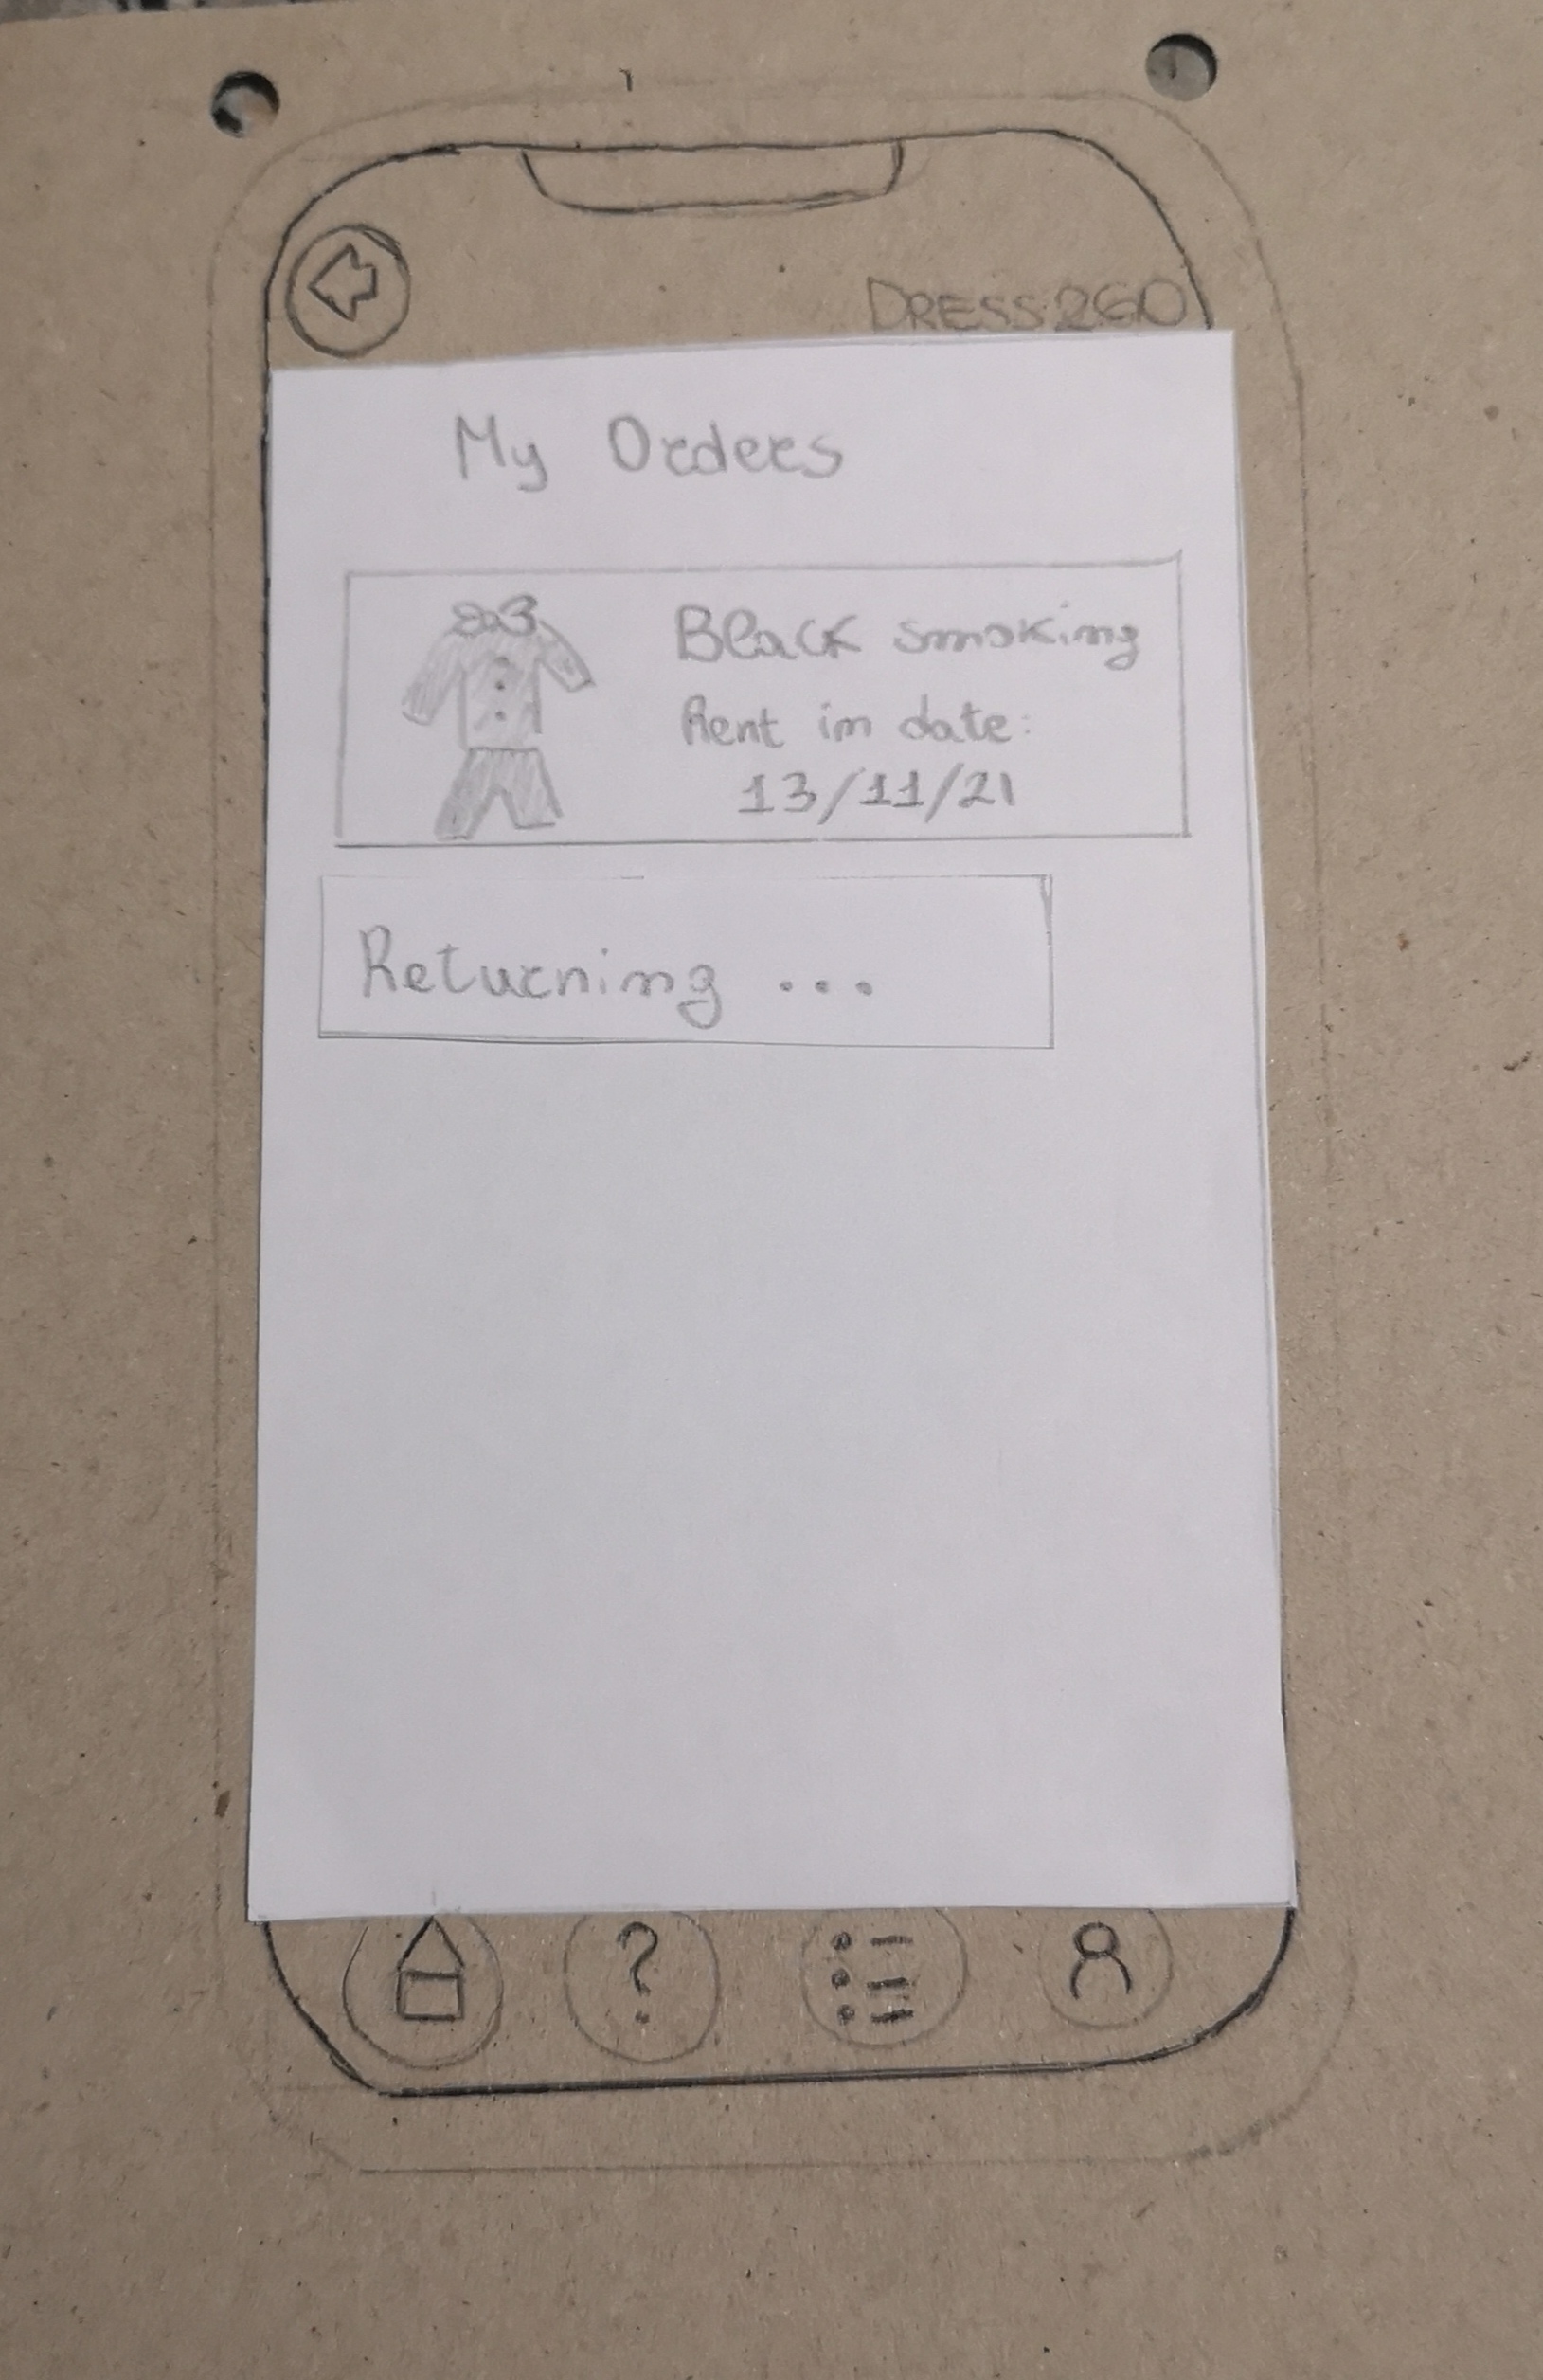 DRESS2GO
My Orders
Black smoking
Rent in date:
13/11/21
Returning ...
?